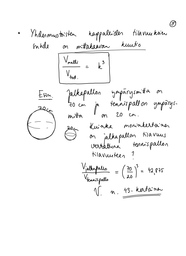 • Yhdenmuotoisten kappaleiden tilavuuksien
suhde on mittakaavan kuutio
V / V = k³
Esim. Jalkapallon ympärysmitta on
70 cm ja tennispallon ympärys-
mitta on 20 cm.
70cm
20cm
Kuinka moninkertainen
on jalkapallon tilavuus
verrattuna tennispallon
tilavuuteen?
V jalkapallo / V tennispallo = (70/20)³ = 42,875
V: n. 43-kertainen